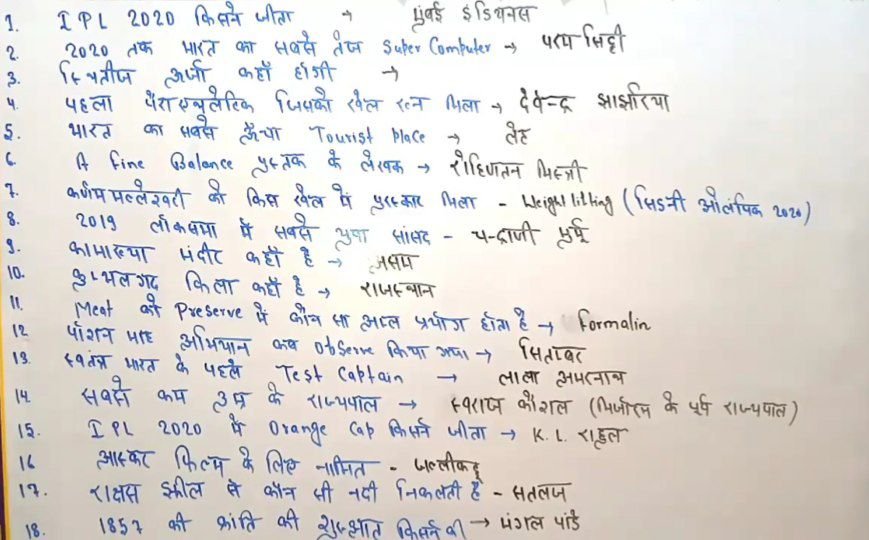 1. IPL 2020 किसने जीता → मुंबई इंडियनस
2. 2020 तक भारत का सबसे तेज Super Computer → परम सिद्दी
3. स्थितीज ऊर्जा कहाँ होगी →
4. पहला पैराएथलेटिक जिसको खेल रत्न मिला → देवेन्द्र झाझरिया
5. भारत का सबसे ऊँचा Tourist Place → लेह
6. A Fine Balance पुस्तक के लेखक → रोहिणतन मिस्त्री
7. कर्णम मल्लेश्वरी को किस खेल में पुरस्कार मिला - Weightlifting (सिडनी ओलंपिक 2020)
8. 2019 लोकसभा में सबसे युवा सांसद - चन्द्राणी मुर्मू
9. कामाख्या मंदीर कहाँ है → असम
10. कुम्भलगढ किला कहाँ है → राजस्थान
11. Meat को Preserve में कौन सा अम्ल प्रयोग होता है → Formalin
12. पोशन माह अभियान कब Observe किया गया → सितम्बर
13. स्वतंत्र भारत के पहले Test Captain → लाला अमरनाथ
14. सबसे कम उम्र के राज्यपाल → स्वराज कौशल (मिजोरम के पूर्व राज्यपाल)
15. IPL 2020 में Orange Cap किसने जीता → K.L. राहुल
16 आस्कर फिल्म के लिए नामित - जल्लीकट्टू
17. राक्षस झील से कौन सी नदी निकलती है - सतलज
18. 1857 की क्रांति की शुरुआत किसने की → मंगल पांडे